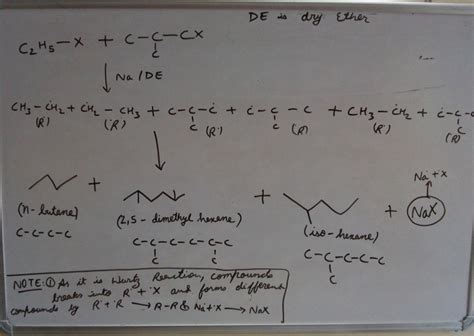 DE is dry Ether
C2H5–X + C–C–CX
C
Na/DE
CH3–ĊH2 + ĊH2–CH3 + C–C–Ċ + Ċ–C–C + CH3–ĊH2 + Ċ–C–C
(R) (R) C (R) C (R) (R) C (R)
+ + + Na + X
(n-butane) (2,5-dimethyl hexane) (iso-hexane) NaX
C–C–C–C C–C–C–C–C–C C–C–C–C–C
C C C
NOTE: ① As it is Wurtz Reaction, compounds
breaks into R + X and forms different
compounds by R + R → R–R & Na + X → NaX